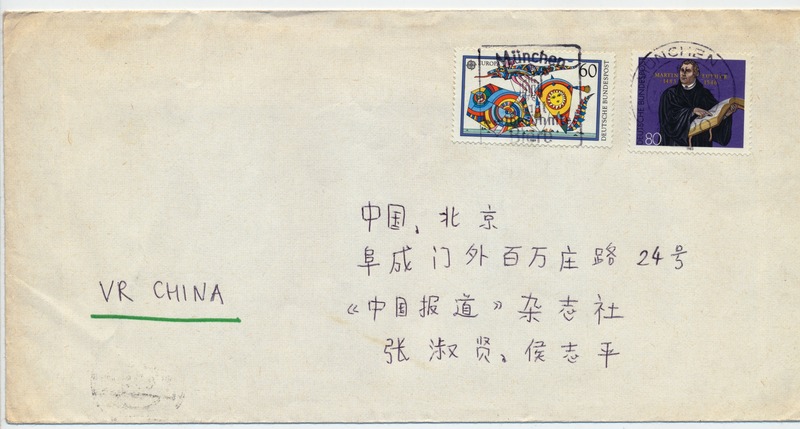 München
MÜNCHEN
EUROPA
60
DEUTSCHE BUNDESPOST
MARTIN LUTHER
1483 1546
DEUTSCHE BUNDESPOST
80
中国、北京
阜成门外百万庄路 24号
《中国报道》杂志社
张淑贤、侯志平
VR CHINA